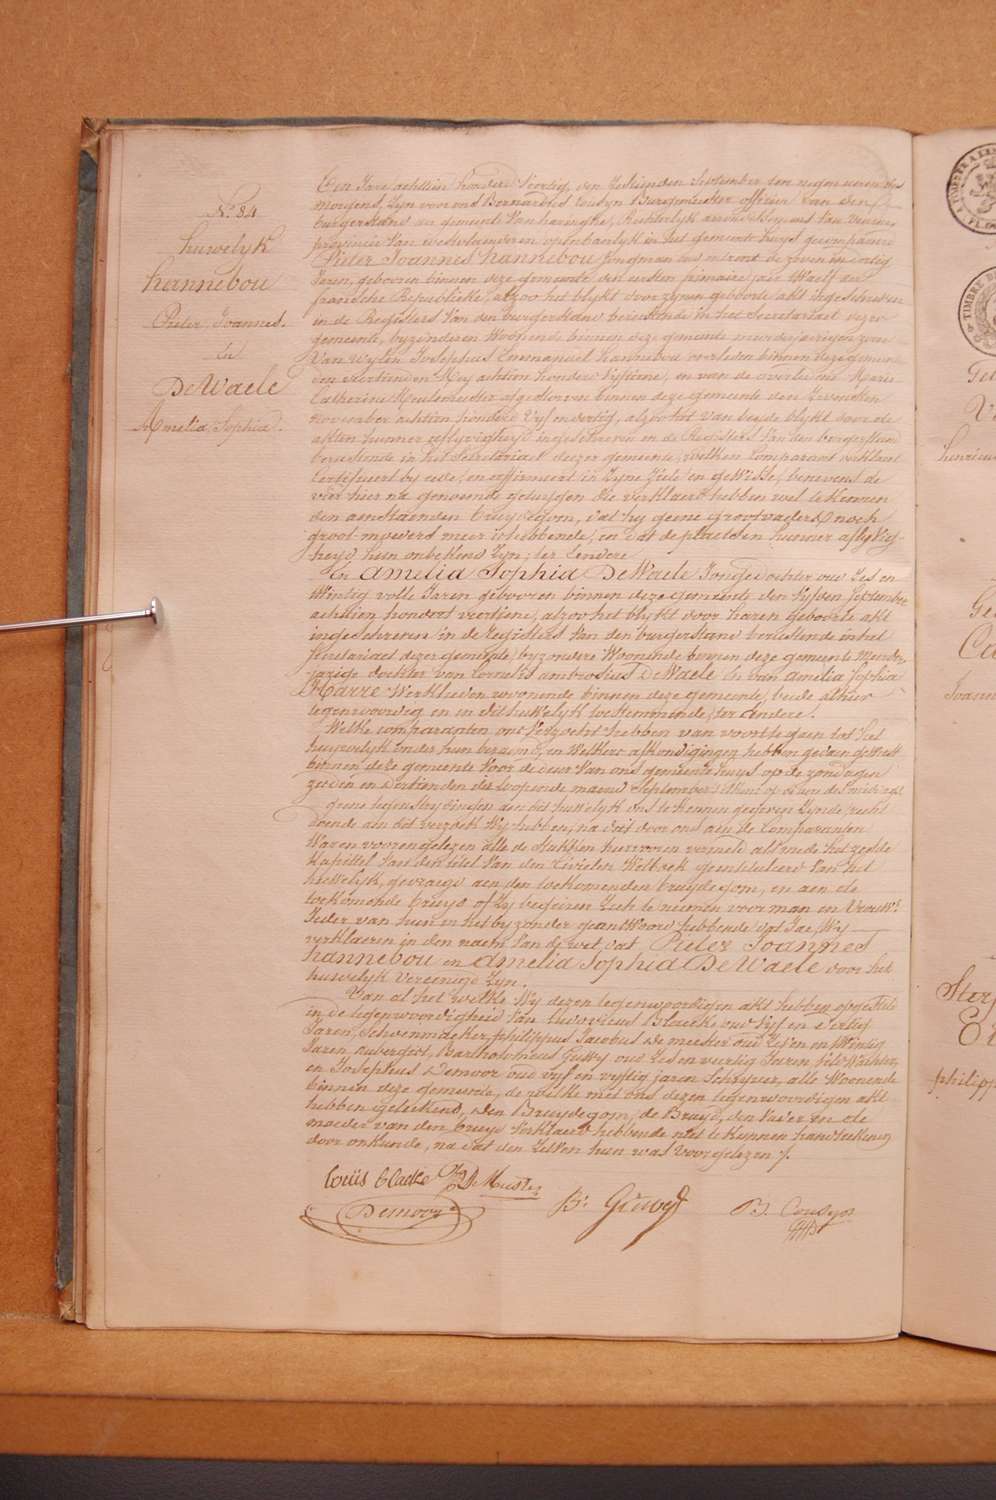 N.º 84
huwelyk
hannebou
Pieter Joannes.
En
DeWaele
Amelia Sophia.
Den Jare achttien honderd Veertig, den September ten negen ueren des
morgens, Zyn voor ons Bernardus Cousyn Burgemeester officier van den
burgerstand der gemeente Van haringhe, Rechterlyk arrondissement Van veurne
provincie Van westvlaenderen openbaerlyk in het gemeente huys gecompareert
Pieter Joannes hannebou jongman oud ontrent de zeven en dertig
Jaren, geboren binnen deze gemeente den eersten frimaire jaer Waelf der
fransche Republieke, alzoo het blykt door zynen geboorte akt ingeschreven
in de Registers Van den burgerstand berustende in het Secretariaet dezer
gemeente, byzonderen Woonende binnen deze gemeente meerderjarigen zoon
Van wylen Josephus Emmanuel hannebou overleden binnen deze gemeente
den veertienden Mey achtien honderd vyftiene, en van de overledene Marie
Catherine Meulemeester afgestorven binnen deze gemeente den
november achtien honderd Vyf en dertig, alzoo het van beyde blykt door de
akten hunner aflyvigheyd ingeschreven in de Registers Van den burgerstand
berustende in het Secretariaet dezer gemeente, welken Comparant verklaert
Certifieert by eede, en affirmeert in Zyne Ziele en geWisse, benevens de
vier hier na genoemde getuygen die verklaert hebben wel te kennen
den aenstaenden bruydegom, dat hy geene grootvaders noch
groot moeders meer is hebbende, en dat de plaetsen hunner aflyvig-
heyd hun onbekend Zyn; ter Eendere
En Amelia Sophia DeWaele Jonge dochter oud Zes en
Wintig volle Jaren gebooren binnen deze gemeente den Vyfden September
achtien honderd veertiene, alzoo het blykt door haren geboorte akt
ingeschreven in de registers Van den burgerstand berustende in het
Secretariaet dezer gemeente, byzondere Woonende binnen deze gemeente Meerder-
jarige dochter van Cornelis ambrosius DeWaele En van amelia Sophia
Harre Werklieden woonende binnen deze gemeente, beide alhier
tegenwoordig en in dit huWelyk toestemmende, ter andere.
Welke comparanten ons Verzocht hebben van voort te gaen tot het
huywelyk tusschen hun beraemd, en Welkers afkondigingen hebben gedaen geWeest
binnen deze gemeente Voor de deur Van ons gemeente huys op de zondagen
zesden en dertienden der loopende maend September
geene tegenstrydigheden aen dit huWelyk ons te kennen gegeven Zynde, recht
doende aen dit verzoek Wy hebben, na dit door ons aen de Comparanten
Waren vooren gelezen alle de stukken hiervooren vermeld als mede het zesde
Kapittel Van den titel Van den Civielen Wetboek geintituleerd Van het
huWelyk, gevraegt aen den toekomenden bruydegom, en aen de
toekomende bruyd of Zy begeiren Zich te nemen voor man en Vrouw:
Ieder van hun in het byzonder geantWoord hebbende dat Jae, Wy
verklaeren in den naem Van de wet, dat Pieter Joannes
hannebou en Amelia Sophia DeWaele voor het
huwelyk Vereenigd Zyn.
Van al het welke Wy dezen tegenwoordigen akt hebben opgesteld
in de tegenwoordigheid Van Ludovicus Blaeke oud Vyf en veertig
Jaren, Schoenmaeker, philippus Jacobus De meester oud Zeven en twintig
Jaren aubergist, Bartholomeus oud Zes en veertig Jaren Veldwachter,
en Josephus Demoor oud vyf en vyftig jaren Schryver, alle Woonende
binnen deze gemeente, de welke met ons dezen tegenwoordigen akt
hebben geteekend, den Bruydegom, de Bruyd, den Vader en de
moeder van den bruyd verklaert hebbende niet te kunnen handteekenen
door onkunde, na dat den Zelven hun was Voorgelezen ./.
Louis Blaeke DeMeester
Demoor
B. Cousyn
TIMBRE
henricus
Joann
philipp